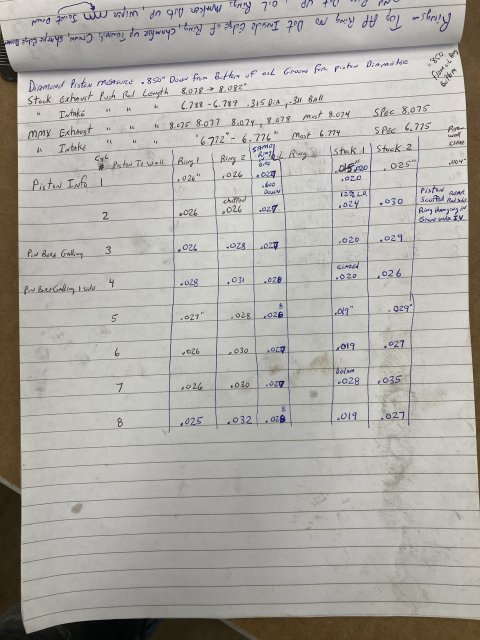 Rings = Top AP Ring no Dot Inside Edge of Ring, Chamfer up Towards Crown, sharpe Edge Down
Oil Rings, Marker Dots up, Wiper Joint Down
.850
from oil Ring
Bottom
Diamond Piston measure .850" Down from Bottom of oil Groove for piston Diameter
Stock Exhaust Push Rod Length 8.078 → 8.083"
" Intake " " " 6.788 - 6.789 .315 Dia, .311 Ball
mmx Exhaust " " " 8.075 8.077 8.074, 8.078 most 8.074 Spec 8.075
" Intake " " " "6.772" - 6.776" most 6.774 Spec 6.775
Cyl # Piston To Wall Ring 1 Ring 2 Stock 1 Stock 2 Piston wall clear
Piston Info 1 .026" .026 .027 .020 .025" .004"
.600 Down
chaffed
2 .026 .026 .027 .024 .030 Piston Scuffed
Ring hanging in
3 .026 .028 .027 .020 .029
Pin Bore Galling
4 .028 .031 .028 .020 .026
Pin Bore Galling 1 side
5 .027" .028 .028 .019" .029"
6 .026 .030 .027 .019 .027
7 .026 .030 .027 .028 .035
8 .025 .032 .028 .019 .027